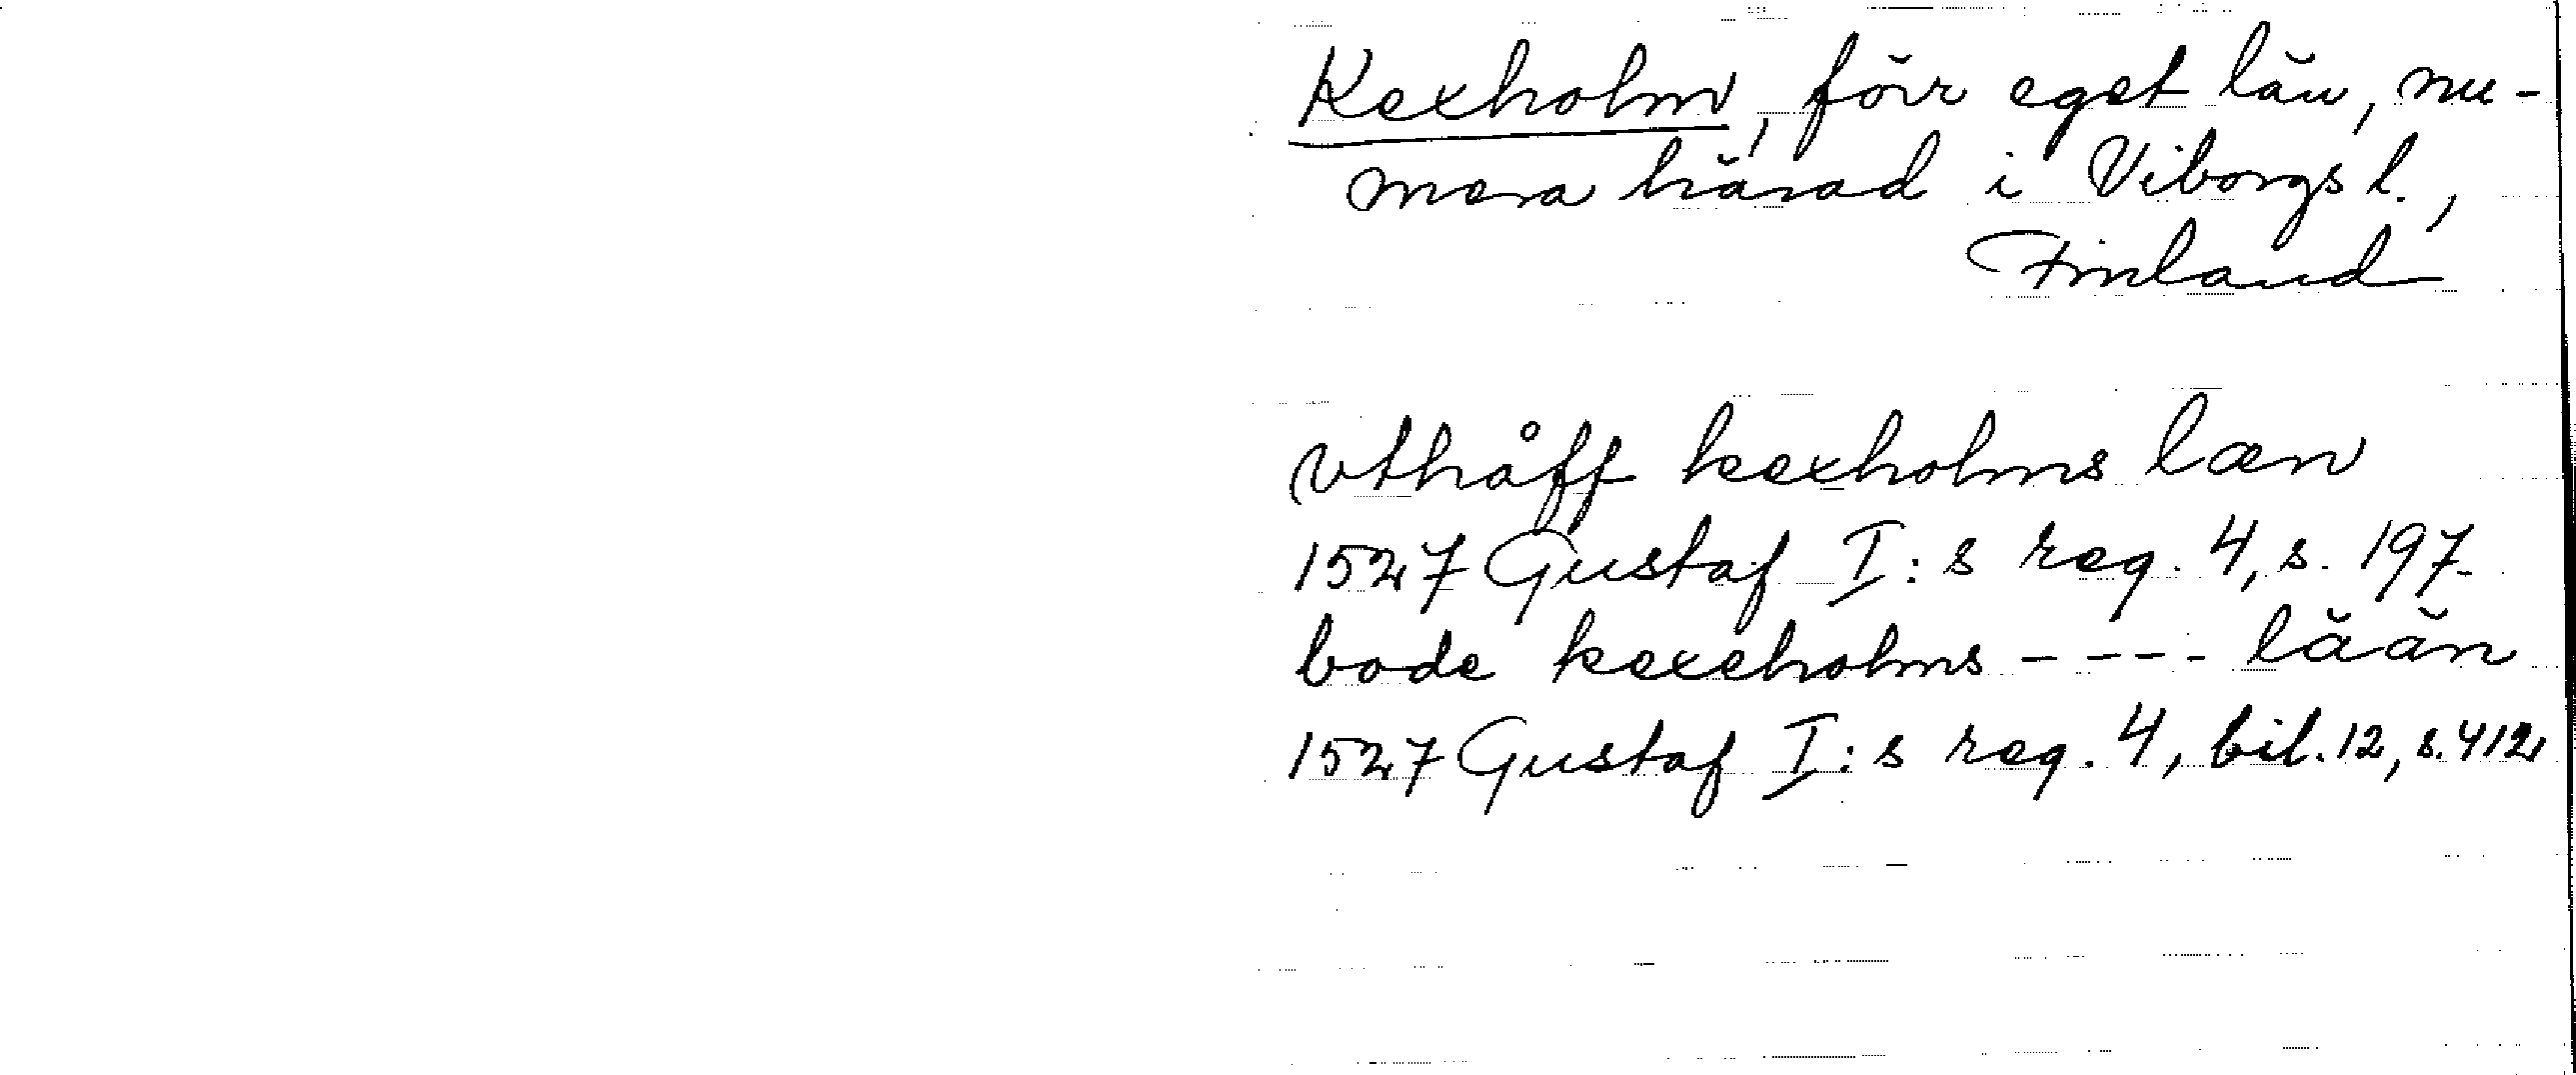 Kexholm, förr eget län, nu-
mera härad i Viborgs l.,
Finland
vthåff kexholms læn
1527 Gustaf I:s reg. 4, s. 197.
bode kexeholms - - - - lään
1527 Gustaf I:s reg. 4, bil. 12, s. 412